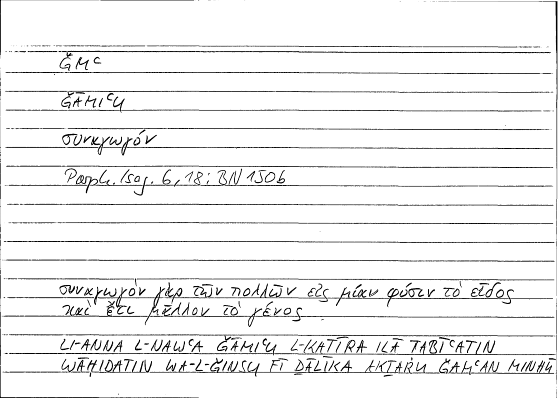 ǦMᶜ
ǦĀMIᶜU
συναγωγόν
Porph. Isag. 6,18: BN 150b
συναγωγόν γὰρ τῶν πολλῶν εἰς μίαν φύσιν τὸ εἶδος
καὶ ἔτι μᾶλλον τὸ γένος
LI-ANNA L-NAWᶜA ǦĀMIᶜU L-KAṮĪRA ILĀ ṬABĪᶜATIN
WĀḤIDATIN WA-L-ǦINSU FĪ ḎĀLIKA AKṮARU ǦAMᶜAN MINHŪ